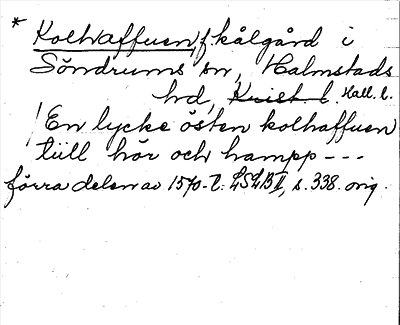 * Kolhaffuen, f. kålgård i
Söndrums sn, Halmstads
hd, Krist. l. Hall. l.
/En lycke östen kolhaffuen
tiill hör och hampp ---
förra delen av 1570-t. LSLB II, s. 338. orig.